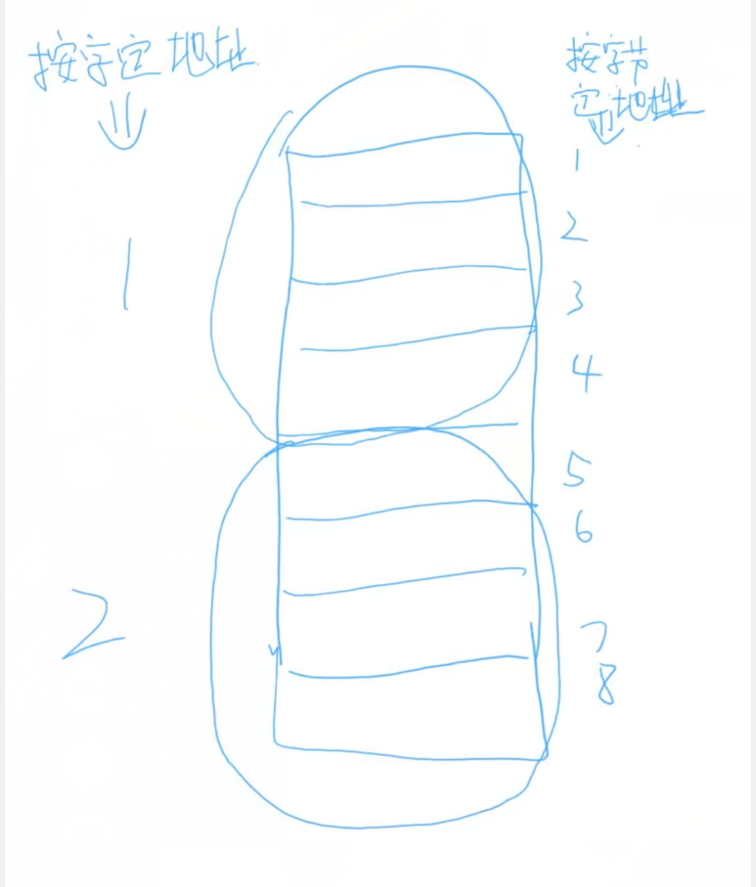 按字定地址
按字节
定地址
1
2
3
4
5
6
7
8
1
2